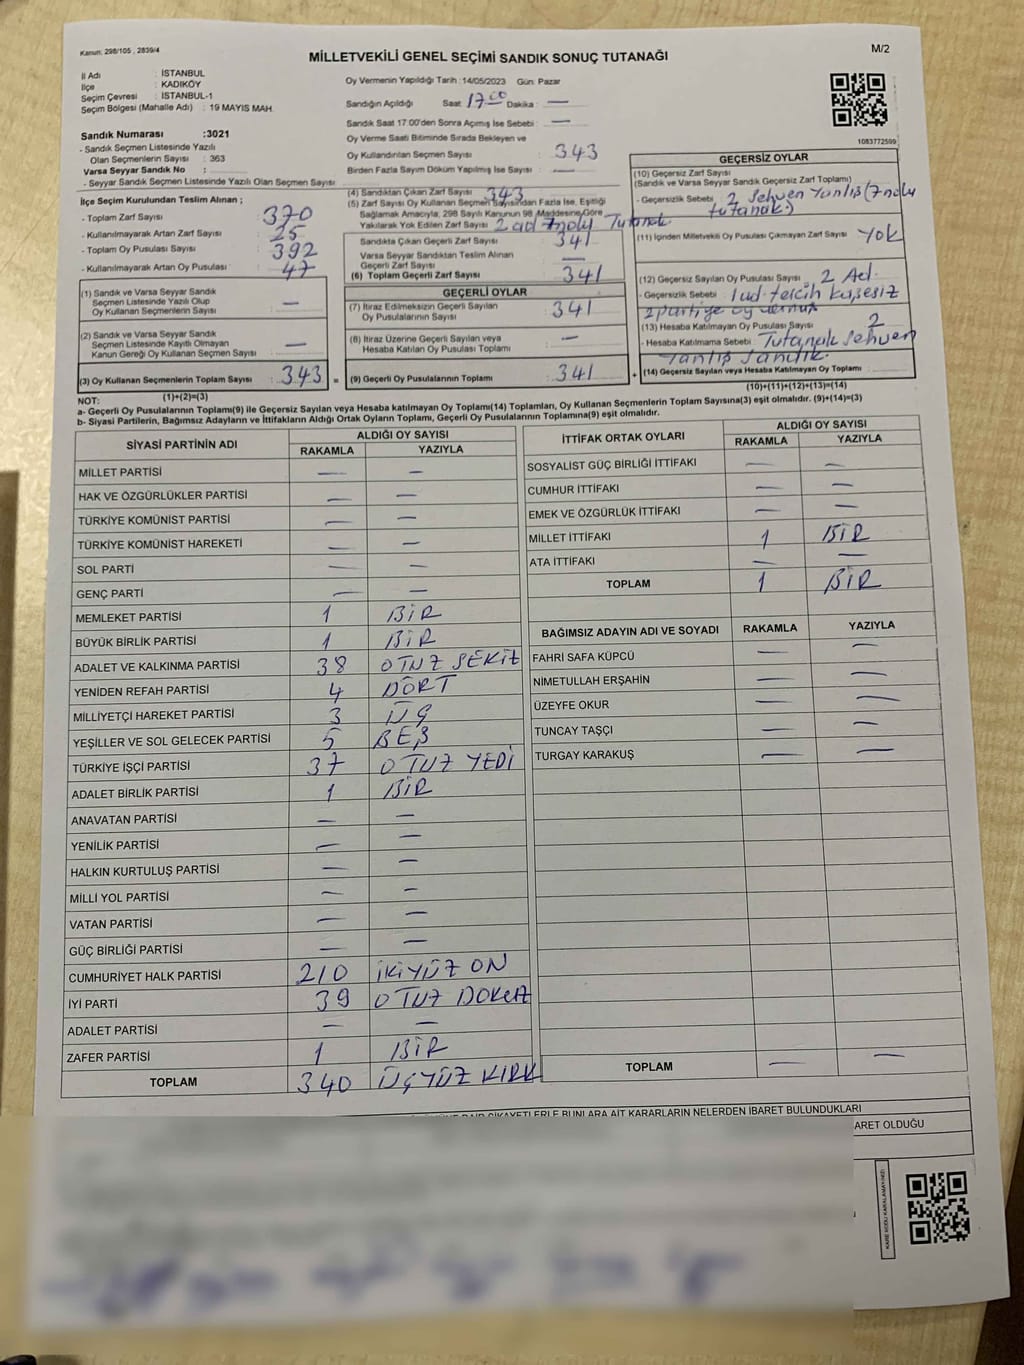 Kanun: 298/105 , 2839/4
M/2
MİLLETVEKİLİ GENEL SEÇİMİ SANDIK SONUÇ TUTANAĞI
İl Adı : İSTANBUL
İlçe : KADIKÖY
Seçim Çevresi : İSTANBUL-1
Seçim Bölgesi (Mahalle Adı) : 19 MAYIS MAH.
Sandık Numarası :3021
- Sandık Seçmen Listesinde Yazılı
Olan Seçmenlerin Sayısı : 363
Varsa Seyyar Sandık No :
- Seyyar Sandık Seçmen Listesinde Yazılı Olan Seçmen Sayısı :
Oy Vermenin Yapıldığı Tarih :14/05/2023 Gün: Pazar
Sandığın Açıldığı Saat : 17:00 Dakika : —
Sandık Saat 17:00'den Sonra Açımış İse Sebebi : —
Oy Verme Saati Bitiminde Sırada Bekleyen ve
Oy Kullandırılan Seçmen Sayısı : 343
Birden Fazla Sayım Döküm Yapılmış İse Sayısı : —
1083772599
İlçe Seçim Kurulundan Teslim Alınan ;
- Toplam Zarf Sayısı : 370
- Kullanılmayarak Artan Zarf Sayısı : 25
- Toplam Oy Pusulası Sayısı : 392
- Kullanılmayarak Artan Oy Pusulası : 47
(1) Sandık ve Varsa Seyyar Sandık
Seçmen Listesinde Yazılı Olup
Oy Kullanan Seçmenlerin Sayısı : —
(2) Sandık ve Varsa Seyyar Sandık
Seçmen Listesinde Kayıtlı Olmayan
Kanun Gereği Oy Kullanan Seçmen Sayısı : —
(3) Oy Kullanan Seçmenlerin Toplam Sayısı : 343 =
(1)+(2)=(3)
(4) Sandıktan Çıkan Zarf Sayısı : 343
(5) Zarf Sayısı Oy Kullanan Seçmen Sayısından Fazla İse, Eşitliği
Sağlamak Amacıyla, 298 Sayılı Kanunun 98. Maddesine Göre
Yakılarak Yok Edilen Zarf Sayısı : 2 ad 7nolu Tutanak
Sandıkta Çıkan Geçerli Zarf Sayısı : 341
Varsa Seyyar Sandıktan Teslim Alınan
Geçerli Zarf Sayısı : —
(6) Toplam Geçerli Zarf Sayısı : 341
GEÇERLİ OYLAR
(7) İtiraz Edilmeksizin Geçerli Sayılan
Oy Pusulalarının Sayısı : 341
(8) İtiraz Üzerine Geçerli Sayılan veya
Hesaba Katılan Oy Pusulası Toplamı : —
(9) Geçerli Oy Pusulalarının Toplamı : 341 +
GEÇERSİZ OYLAR
(10) Geçersiz Zarf Sayısı
(Sandık ve Varsa Seyyar Sandık Geçersiz Zarf Toplamı)
- Geçersizlik Sebebi : 2 Sehven Yanlış (7nolu
tutanak)
(11) İçinden Milletvekili Oy Pusulası Çıkmayan Zarf Sayısı : YOK
(12) Geçersiz Sayılan Oy Pusulası Sayısı : 2 Ad.
- Geçersizlik Sebebi : 1ad. tercih kaşesiz
2partiye oy vermiş
(13) Hesaba Katılmayan Oy Pusulası Sayısı : 2
- Hesaba Katılmama Sebebi : Tutanak Sehven
Yanlış Sandık.
(14) Geçersiz Sayılan veya Hesaba Katılmayan Oy Toplamı :
(10)+(11)+(12)+(13)=(14)
NOT:
a- Geçerli Oy Pusulalarının Toplamı(9) ile Geçersiz Sayılan veya Hesaba katılmayan Oy Toplamı(14) Toplamları, Oy Kullanan Seçmenlerin Toplam Sayısına(3) eşit olmalıdır. (9)+(14)=(3)
b- Siyasi Partilerin, Bağımsız Adayların ve İttifakların Aldığı Ortak Oyların Toplamı, Geçerli Oy Pusulalarının Toplamına(9) eşit olmalıdır.
SİYASİ PARTİNİN ADI ALDIĞI OY SAYISI
RAKAMLA YAZIYLA
MİLLET PARTİSİ — —
HAK VE ÖZGÜRLÜKLER PARTİSİ — —
TÜRKİYE KOMÜNİST PARTİSİ — —
TÜRKİYE KOMÜNİST HAREKETİ — —
SOL PARTİ — —
GENÇ PARTİ — —
MEMLEKET PARTİSİ 1 BİR
BÜYÜK BİRLİK PARTİSİ 1 BİR
ADALET VE KALKINMA PARTİSİ 38 OTUZ SEKİZ
YENİDEN REFAH PARTİSİ 4 DÖRT
MİLLİYETÇİ HAREKET PARTİSİ 3 ÜÇ
YEŞİLLER VE SOL GELECEK PARTİSİ 5 BEŞ
TÜRKİYE İŞÇİ PARTİSİ 37 OTUZ YEDİ
ADALET BİRLİK PARTİSİ 1 BİR
ANAVATAN PARTİSİ — —
YENİLİK PARTİSİ — —
HALKIN KURTULUŞ PARTİSİ — —
MİLLİ YOL PARTİSİ — —
VATAN PARTİSİ — —
GÜÇ BİRLİĞİ PARTİSİ — —
CUMHURİYET HALK PARTİSİ 210 İKİYÜZ ON
İYİ PARTİ 39 OTUZ DOKUZ
ADALET PARTİSİ — —
ZAFER PARTİSİ 1 BİR
TOPLAM 340 ÜÇYÜZ KIRK
İTTİFAK ORTAK OYLARI ALDIĞI OY SAYISI
RAKAMLA YAZIYLA
SOSYALİST GÜÇ BİRLİĞİ İTTİFAKI — —
CUMHUR İTTİFAKI — —
EMEK VE ÖZGÜRLÜK İTTİFAKI — —
MİLLET İTTİFAKI 1 BİR
ATA İTTİFAKI — —
TOPLAM 1 BİR
BAĞIMSIZ ADAYIN ADI VE SOYADI RAKAMLA YAZIYLA
FAHRİ SAFA KÜPCÜ — —
NİMETULLAH ERŞAHİN — —
ÜZEYFE OKUR — —
TUNCAY TAŞÇI — —
TURGAY KARAKUŞ — —
TOPLAM — —
ŞİKAYETLERLE BUNLARA AİT KARARLARIN NELERDEN İBARET BULUNDUKLARI
ARET OLDUĞU
KARE KODU KARALAMAYINIZ!